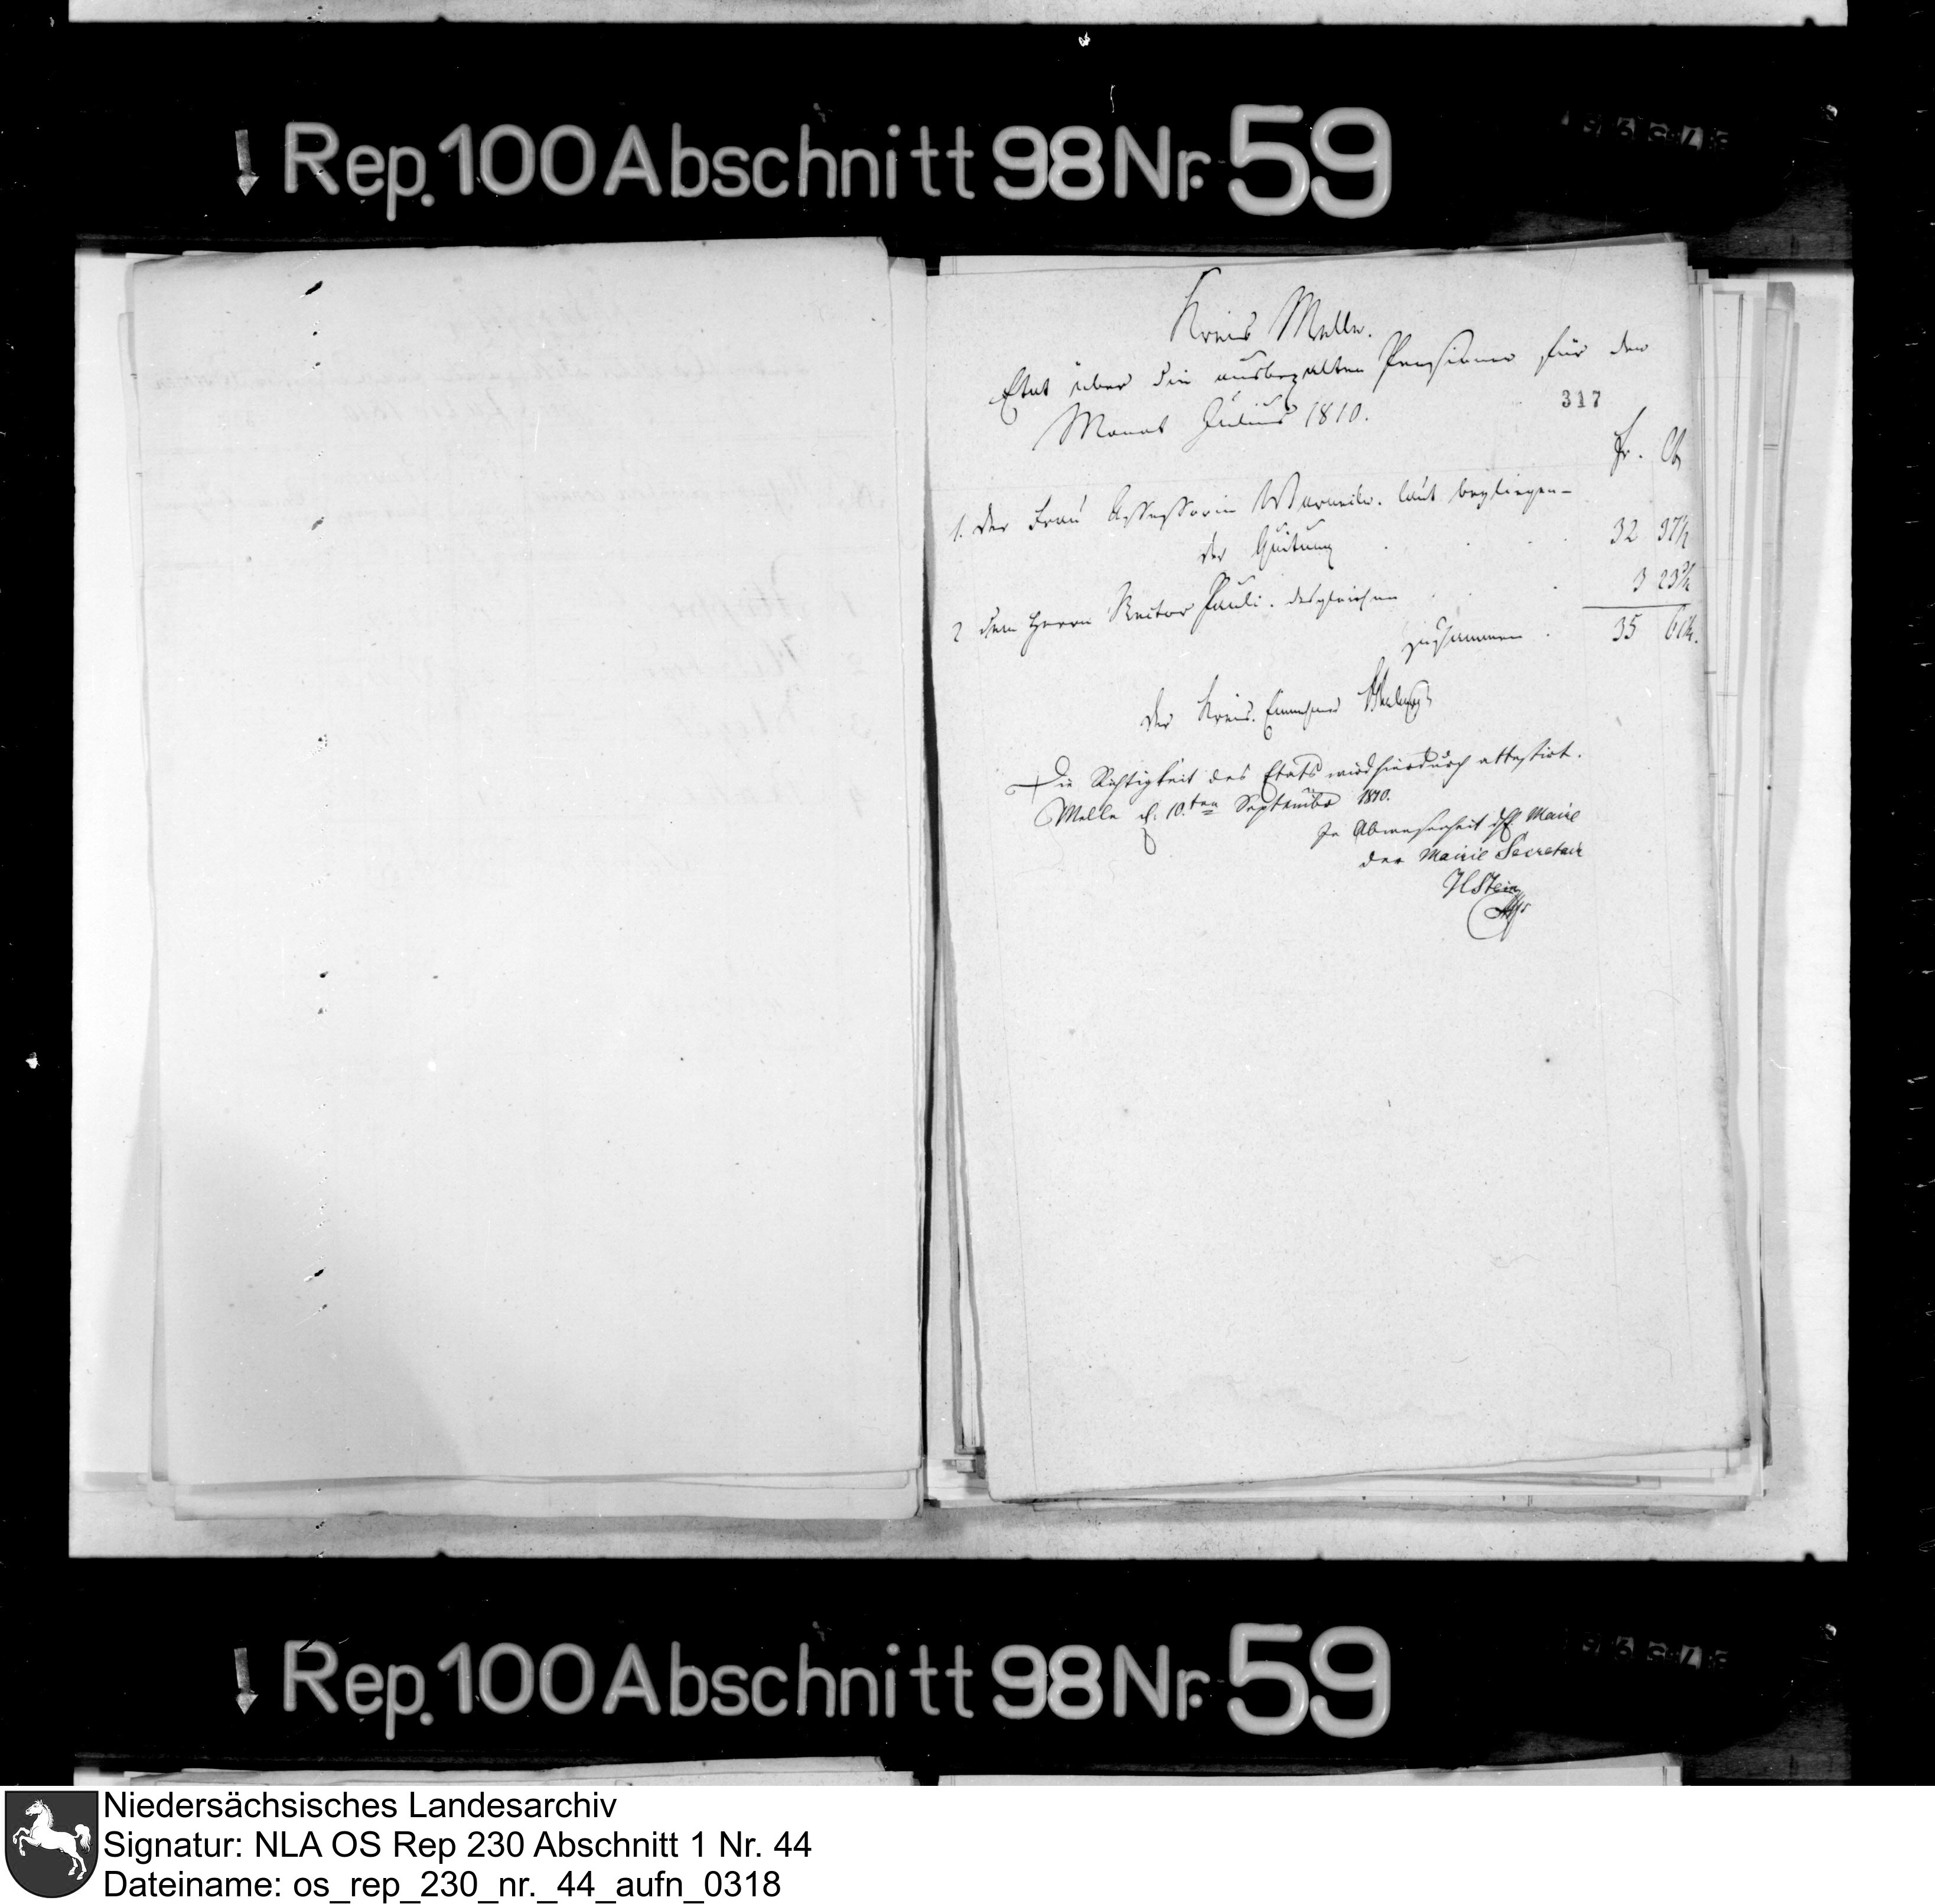 Rep. 100 Abschnitt 98 Nr. 59
Kreis Melle.
Etat über die ausbezalten Pensionen für den
Monat Julius 1810.
317
fr. Cts
1. der Frau Assessorin laut beyliegen-
der Quitung 32 37½
2 dem Herrn Rector Pauli. desgleichen 3 23¾
zusammen 35 61¼.
Der Kreis. Einnehmer
Die Richtigkeit des Etats wird hierdurch attestirt.
Melle d. 10.ten September 1810.
In Abwesenheit des Maire
der Mairie Secretair
HStein
Rep. 100 Abschnitt 98 Nr. 59
Niedersächsisches Landesarchiv
Signatur: NLA OS Rep 230 Abschnitt 1 Nr. 44
Dateiname: os_rep_230_nr._44_aufn_0318